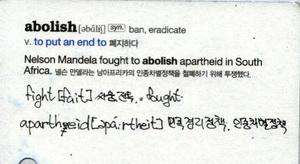 abolish [əbáliʃ] syn. ban, eradicate
v. to put an end to 폐지하다
Nelson Mandela fought to abolish apartheid in South
Africa. 넬슨 만델라는 남아프리카의 인종차별정책을 철폐하기 위해 투쟁했다.
fight [fáit] fought
apartheid [əpá:rtheit] 민족격리정책, 인종차별정책